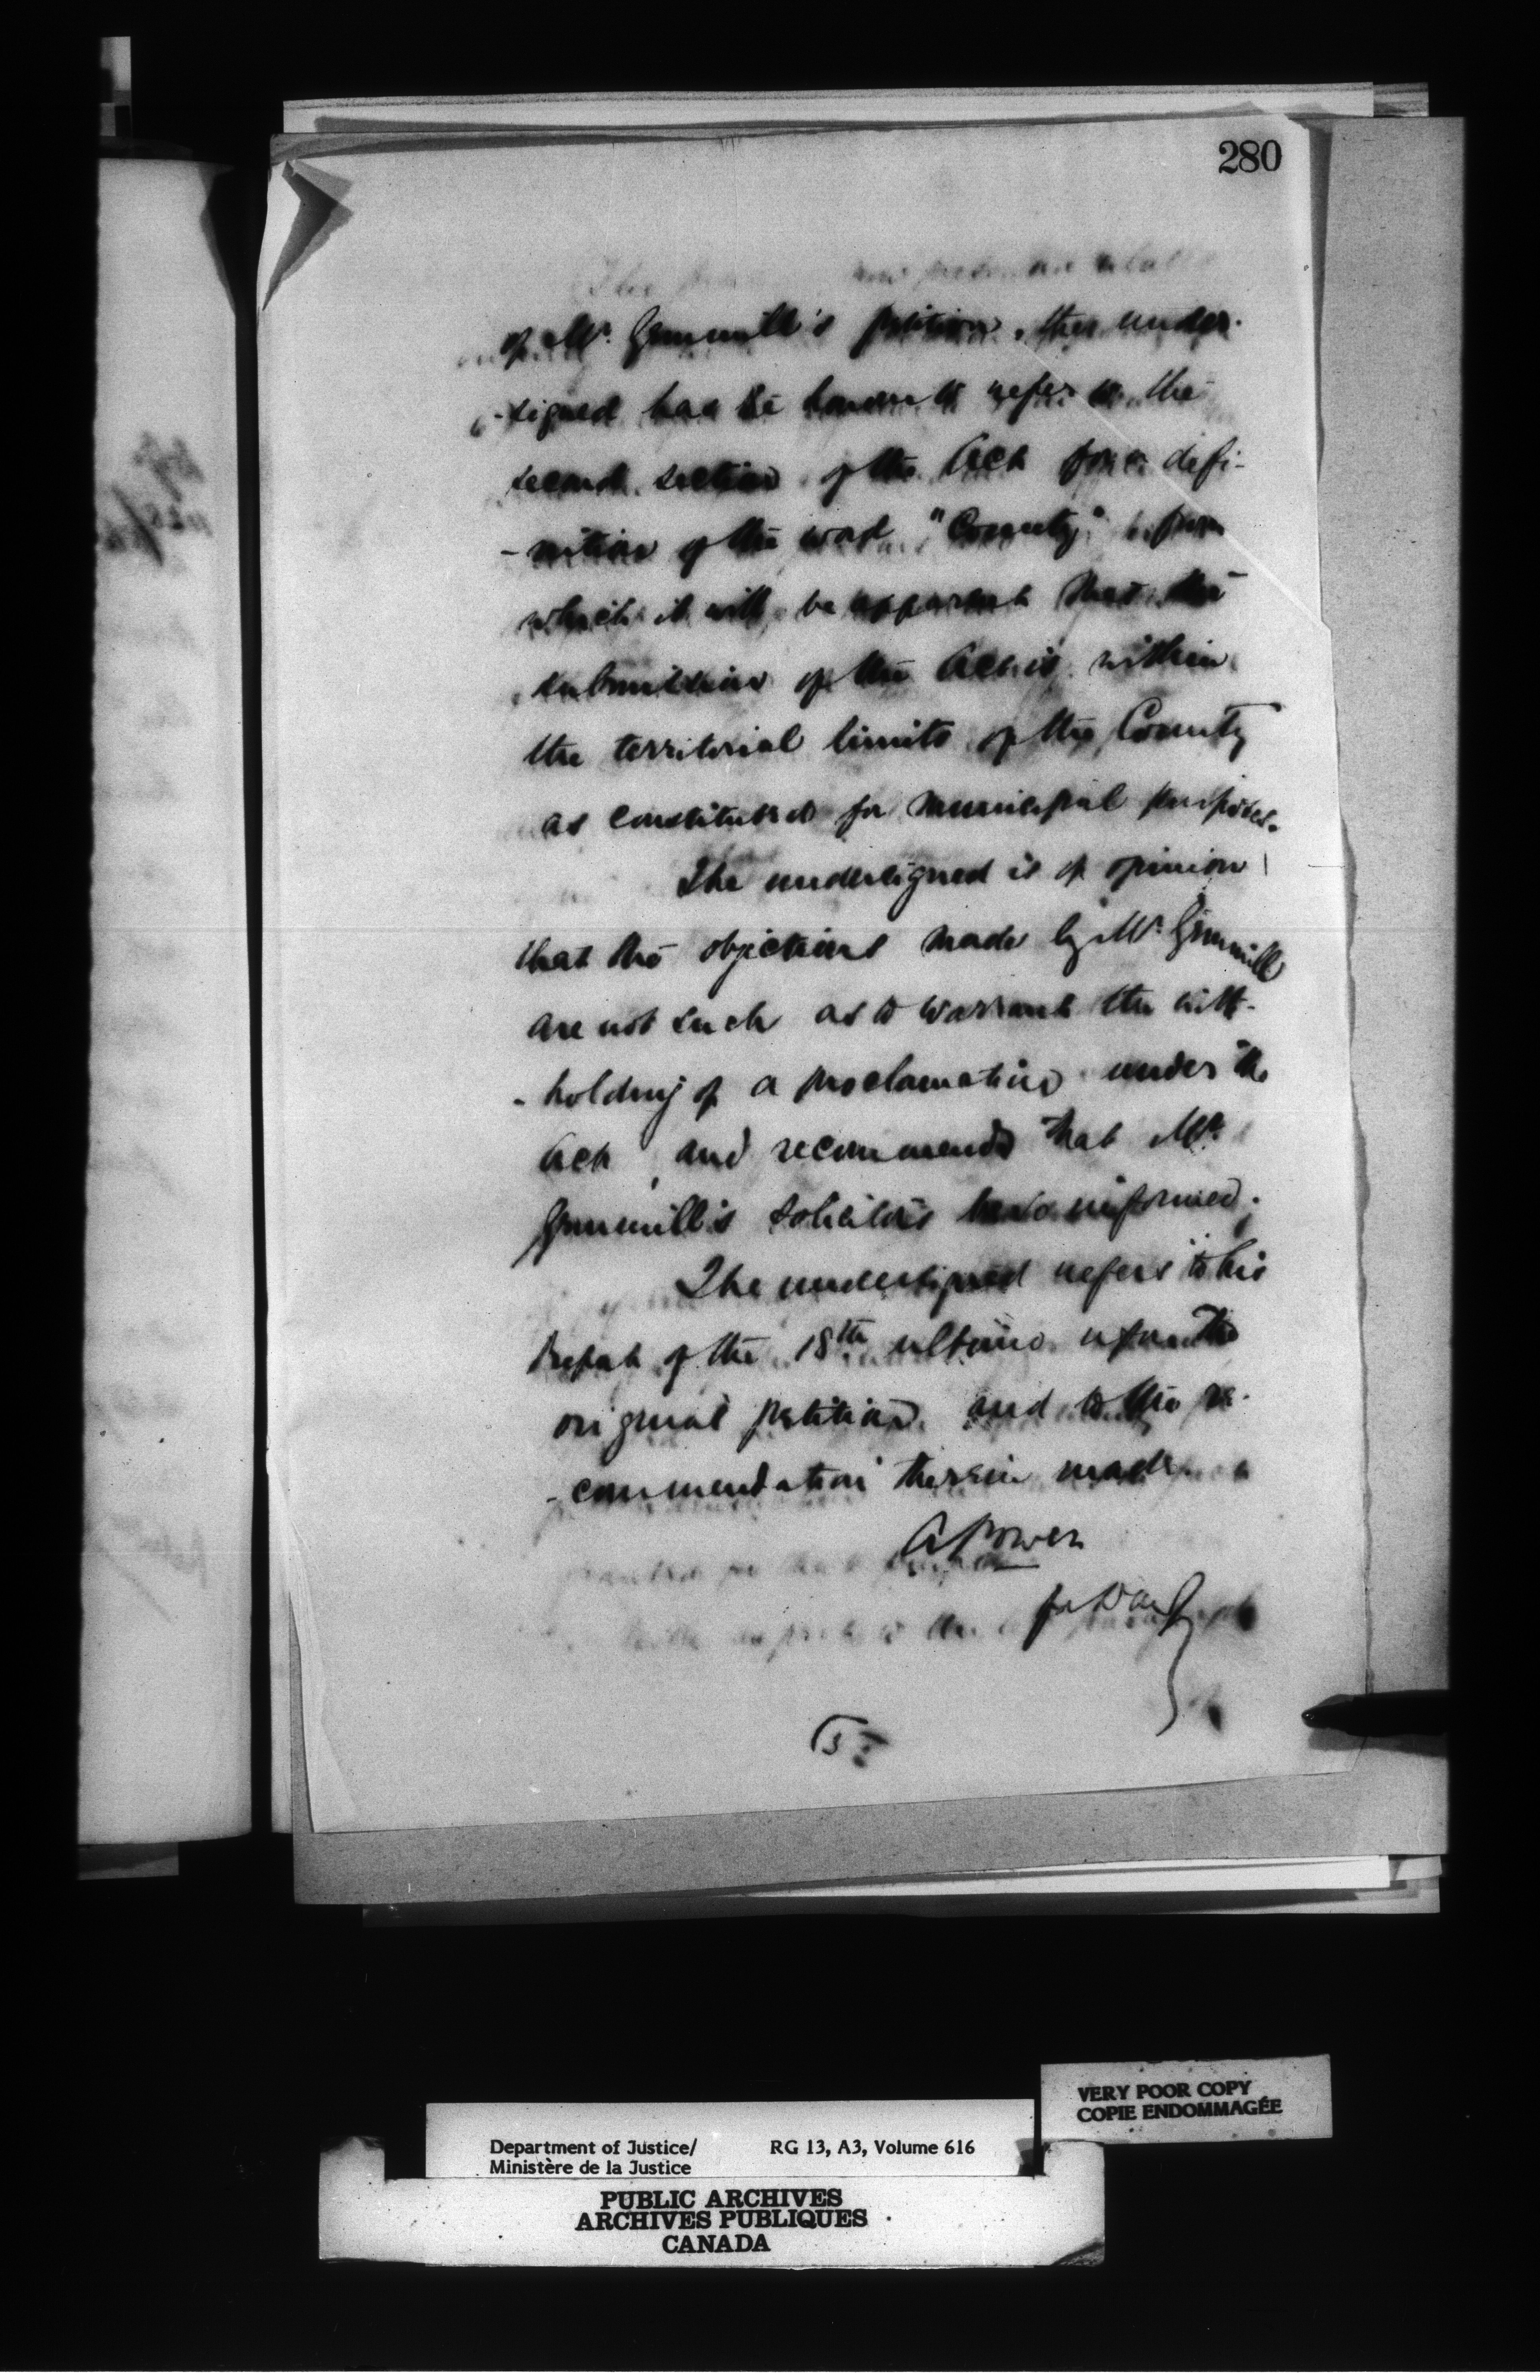 280
of Mr. Gemmill's petition, the under-
-signed has the honour to refer to the
second section of the Act for a defi-
-nition of the word "County", from
which it will be apparent that the
submission of the Act is within
the territorial limits of the County
as constituted for municipal purposes.
The undersigned is of opinion
that the objections made by Mr. Gemmill
are not such as to warrant the with-
-holding of a proclamation under the
Act, and recommends that Mr.
Gemmill's solicitors be so informed.
The undersigned refers to his
Report of the 18th ultimo upon the
original petition and to the re-
-commendation therein made.
A Power
for D
VERY POOR COPY
COPIE ENDOMMAGÉE
Department of Justice/ RG 13, A3, Volume 616
Ministère de la Justice
PUBLIC ARCHIVES
ARCHIVES PUBLIQUES
CANADA